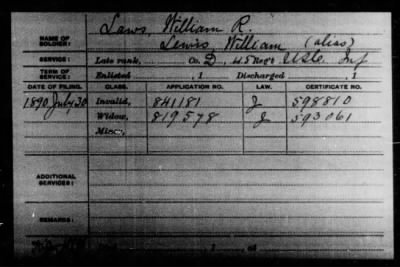 Laws, William R.
NAME OF SOLDIER:
Lewis, William (alias)
SERVICE: Late rank, Co. D, U.S. Reg't USC Inf
TERM OF SERVICE: Enlisted , 1 Discharged , 1
DATE OF FILING. CLASS. APPLICATION NO. LAW. CERTIFICATE NO.
1890 July 30 Invalid, 841181 J 598810
Widow, 819578 J 593061
Minor,
ADDITIONAL SERVICES:
REMARKS: